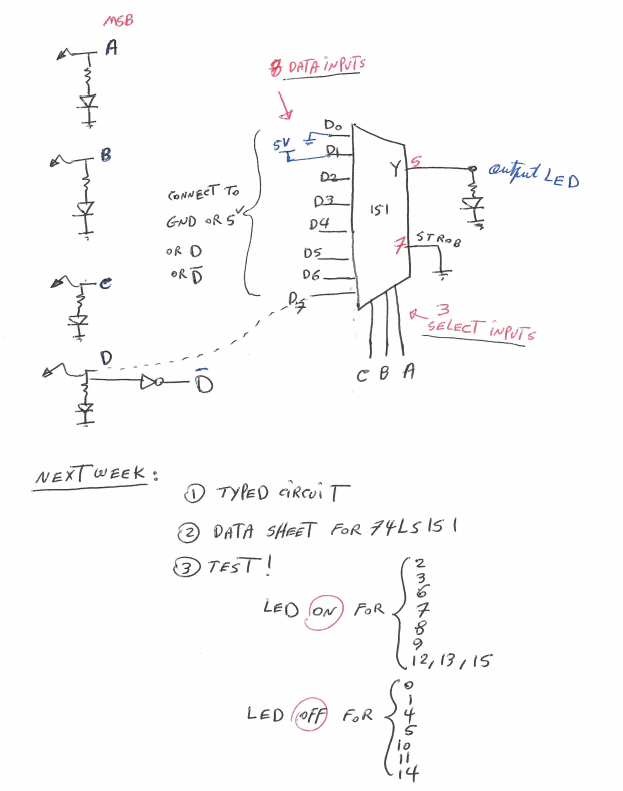 MSB
A
B
C
D
D̅
8 DATA INPUTS
5V
CONNECT TO
GND OR 5V
OR D
OR D̅
D0
D1
D2
D3
D4
D5
D6
D7
151
Y 5
output LED
7 STROB
3
SELECT INPUTS
C B A
NEXT WEEK:
① TYPED CIRCUIT
② DATA SHEET FOR 74LS151
③ TEST!
LED ON FOR
2
3
6
7
8
9
12, 13, 15
LED OFF FOR
0
1
4
5
10
11
14